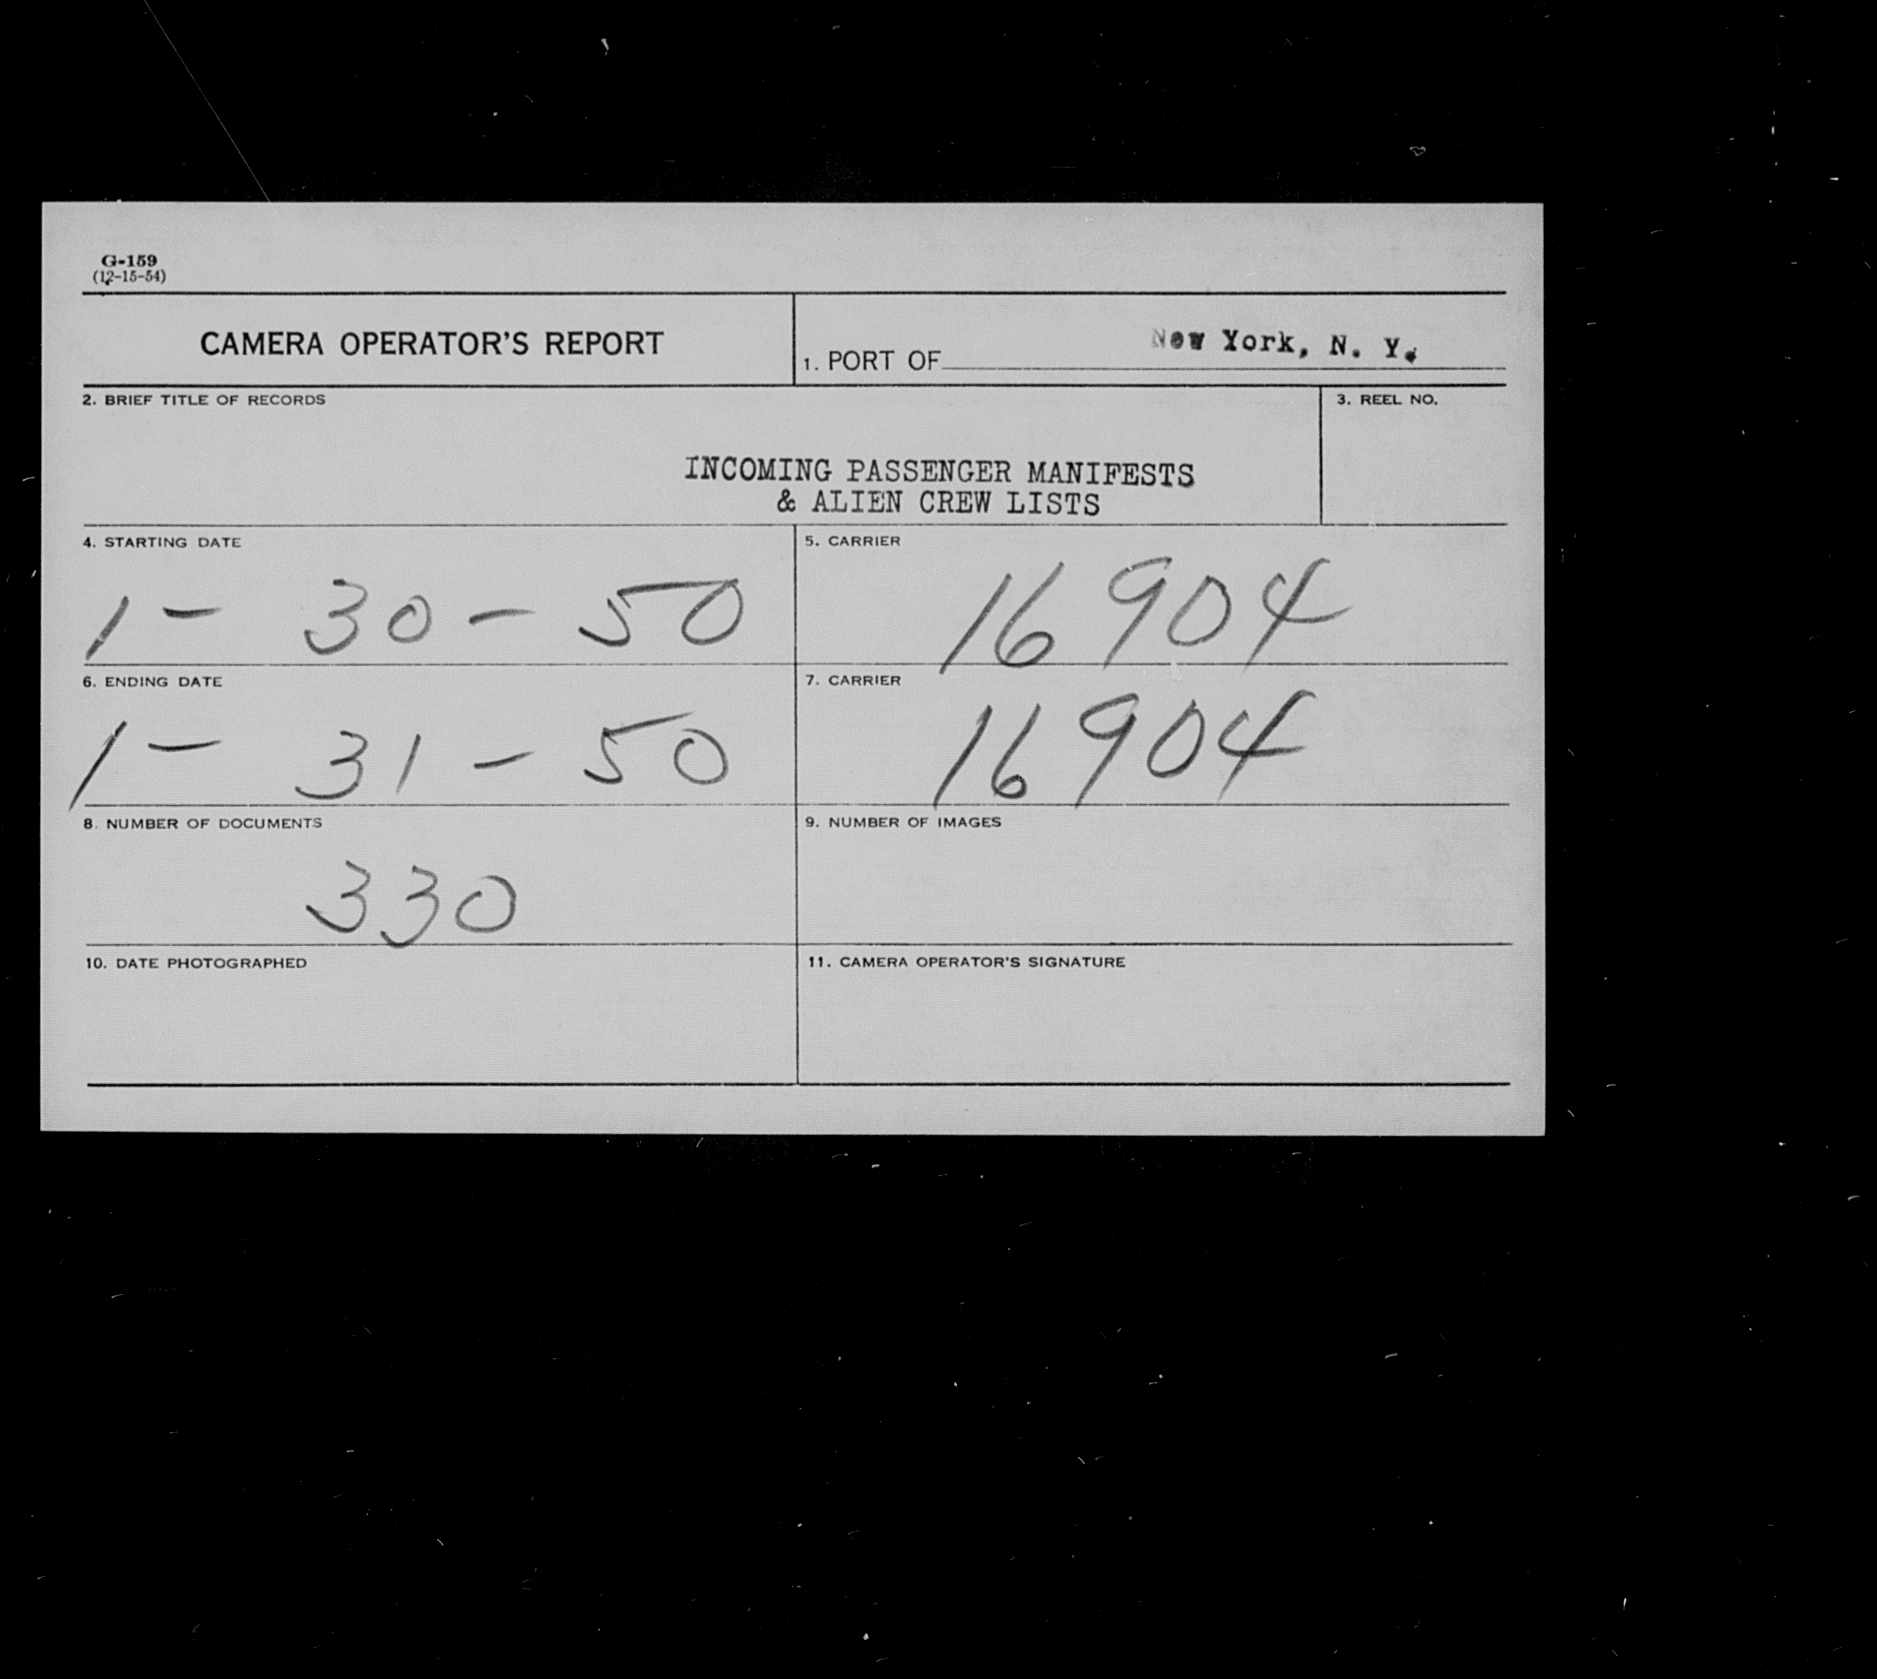 G-159
(12-15-54)
CAMERA OPERATOR'S REPORT
1. PORT OF New York, N. Y.
2. BRIEF TITLE OF RECORDS
3. REEL NO.
INCOMING PASSENGER MANIFESTS
& ALIEN CREW LISTS
4. STARTING DATE
1 - 30 - 50
5. CARRIER
16904
6. ENDING DATE
1 - 31 - 50
7. CARRIER
16904
8. NUMBER OF DOCUMENTS
330
9. NUMBER OF IMAGES
10. DATE PHOTOGRAPHED
11. CAMERA OPERATOR'S SIGNATURE